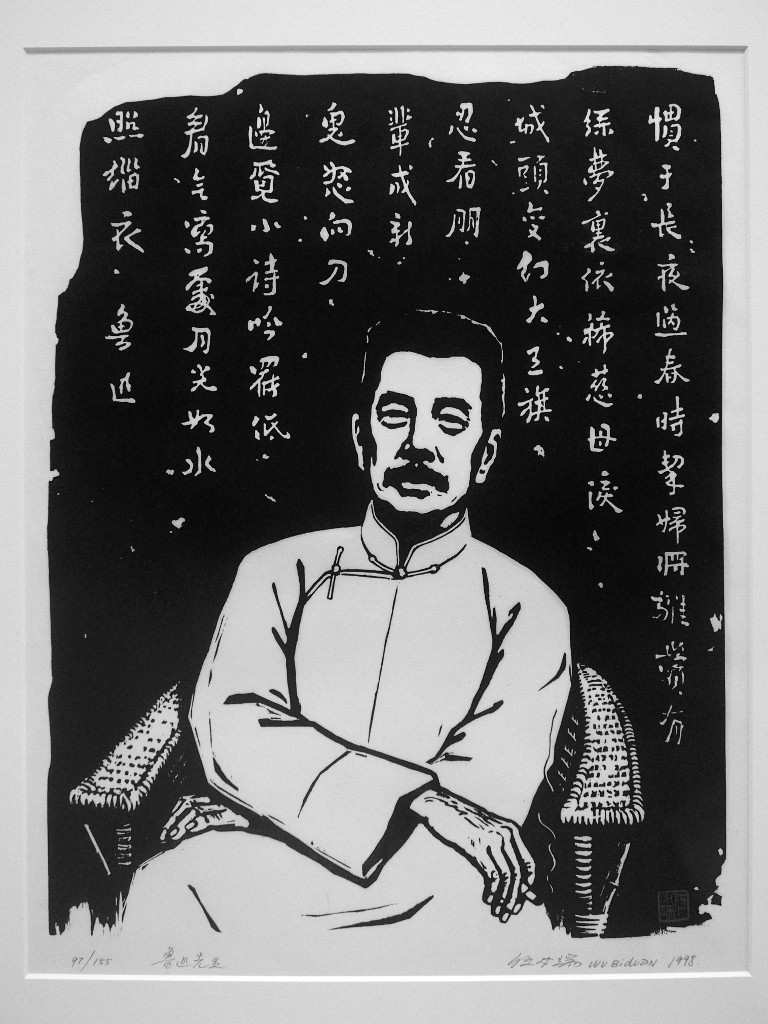 慣于長夜過春時挈婦將雛鬢有
絲夢裏依稀慈母淚
城頭变幻大王旗
忍看朋
輩成新
鬼怒向刀
邊覓小诗吟罷低
眉无寫處月光如水
照緇衣 魯迅
97/155 魯迅先生 伍必端 WU BiDUAN 1998